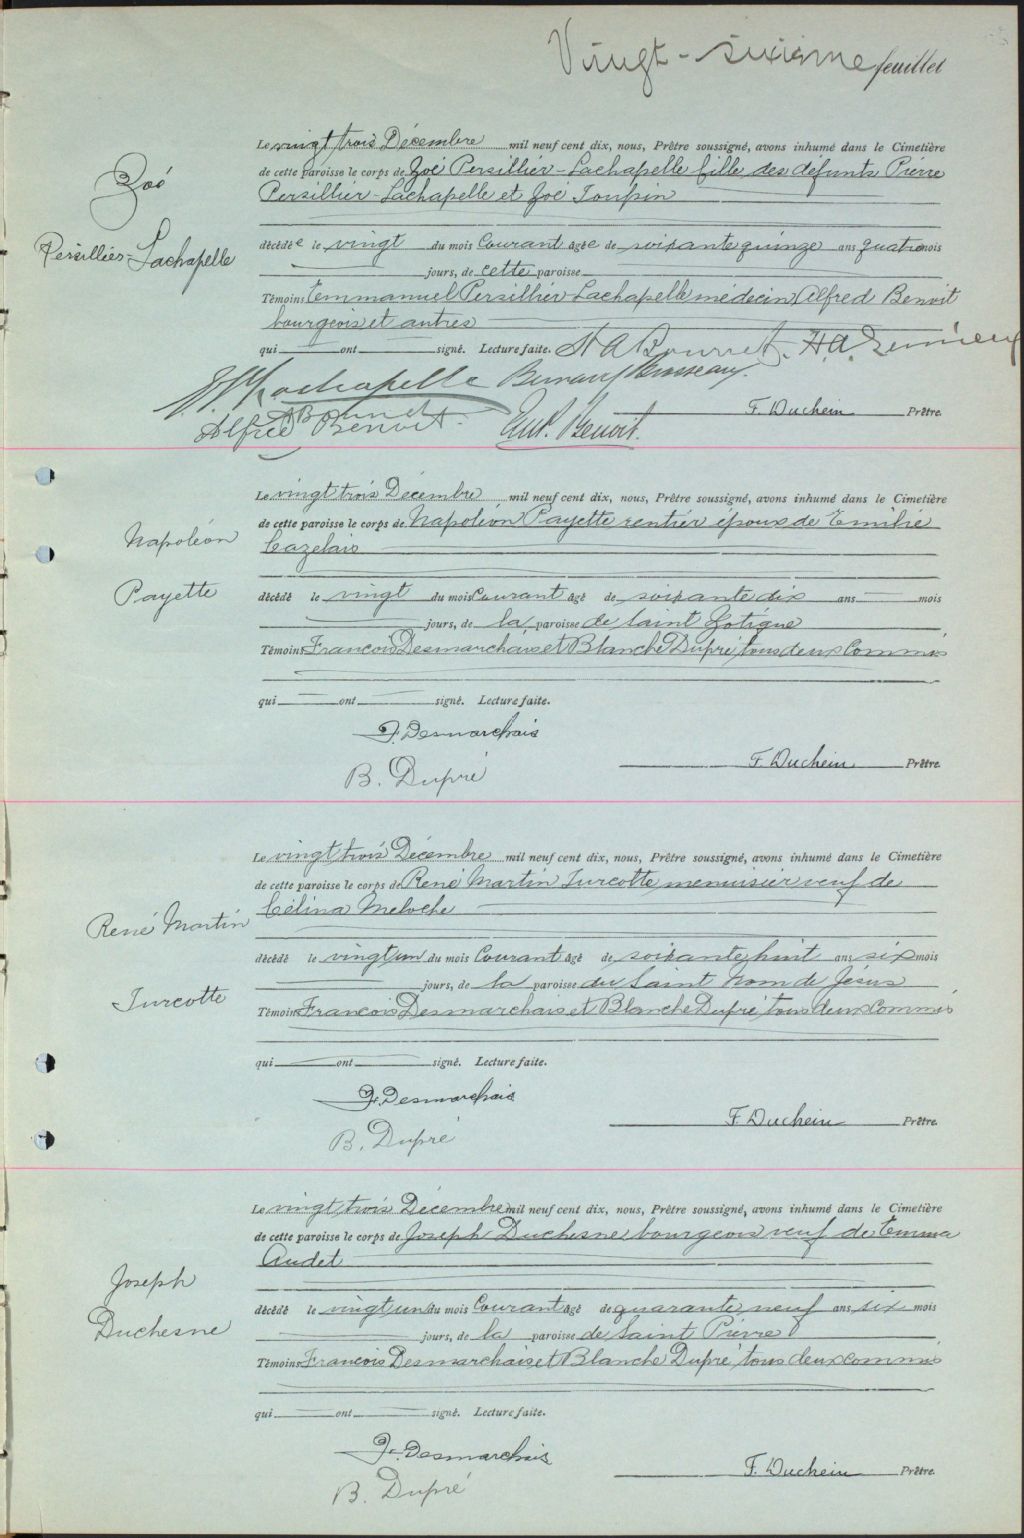 Vingt-sixième feuillet
Zoé
Persillier-Lachapelle
Le vingt trois Décembre mil neuf cent dix, nous, Prêtre soussigné, avons inhumé dans le Cimetière
de cette paroisse le corps de Zoé Persillier-Lachapelle fille des défunts Pierre
Persillier-Lachapelle et Zoé Toupin
décédée le vingt du mois Courant âgée de soixante quinze ans quatre mois
jours, de cette paroisse
Témoins Emmanuel Persillier Lachapelle médecin, Alfred Benoit
bourgeois et autres
qui ont signé. Lecture faite.
Lachapelle
Alfred Benoit
Benoit
F. Duchein Prêtre.
Napoléon
Payette
Le vingt trois Décembre mil neuf cent dix, nous, Prêtre soussigné, avons inhumé dans le Cimetière
de cette paroisse le corps de Napoléon Payette rentier époux de Emilie
Cazelais
décédé le vingt du mois Courant âgé de soixante dix ans mois
jours, de la paroisse de Saint Zotique
Témoins Francois Desmarchais et Blanche Dupré tous deux Commis
qui ont signé. Lecture faite.
F. Desmarchais
B. Dupré
F. Duchein Prêtre.
René Martin
Turcotte
Le vingt trois Décembre mil neuf cent dix, nous, Prêtre soussigné, avons inhumé dans le Cimetière
de cette paroisse le corps de René Martin Turcotte menuisier veuf de
Célina Meloche
décédé le vingt un du mois Courant âgé de soixante huit ans six mois
jours, de la paroisse du Saint Nom de Jésus
Témoins Francois Desmarchais et Blanche Dupré tous deux commis
qui ont signé. Lecture faite.
F. Desmarchais
B. Dupré
F. Duchein Prêtre.
Joseph
Duchesne
Le vingt trois Décembre mil neuf cent dix, nous, Prêtre soussigné, avons inhumé dans le Cimetière
de cette paroisse le corps de Joseph Duchesne bourgeois veuf de Emma
Audet
décédé le vingt un du mois Courant âgé de quarante neuf ans six mois
jours, de la paroisse de Saint Pierre
Témoins Francois Desmarchais et Blanche Dupré tous deux commis
qui ont signé. Lecture faite.
F. Desmarchais
B. Dupré
F. Duchein Prêtre.